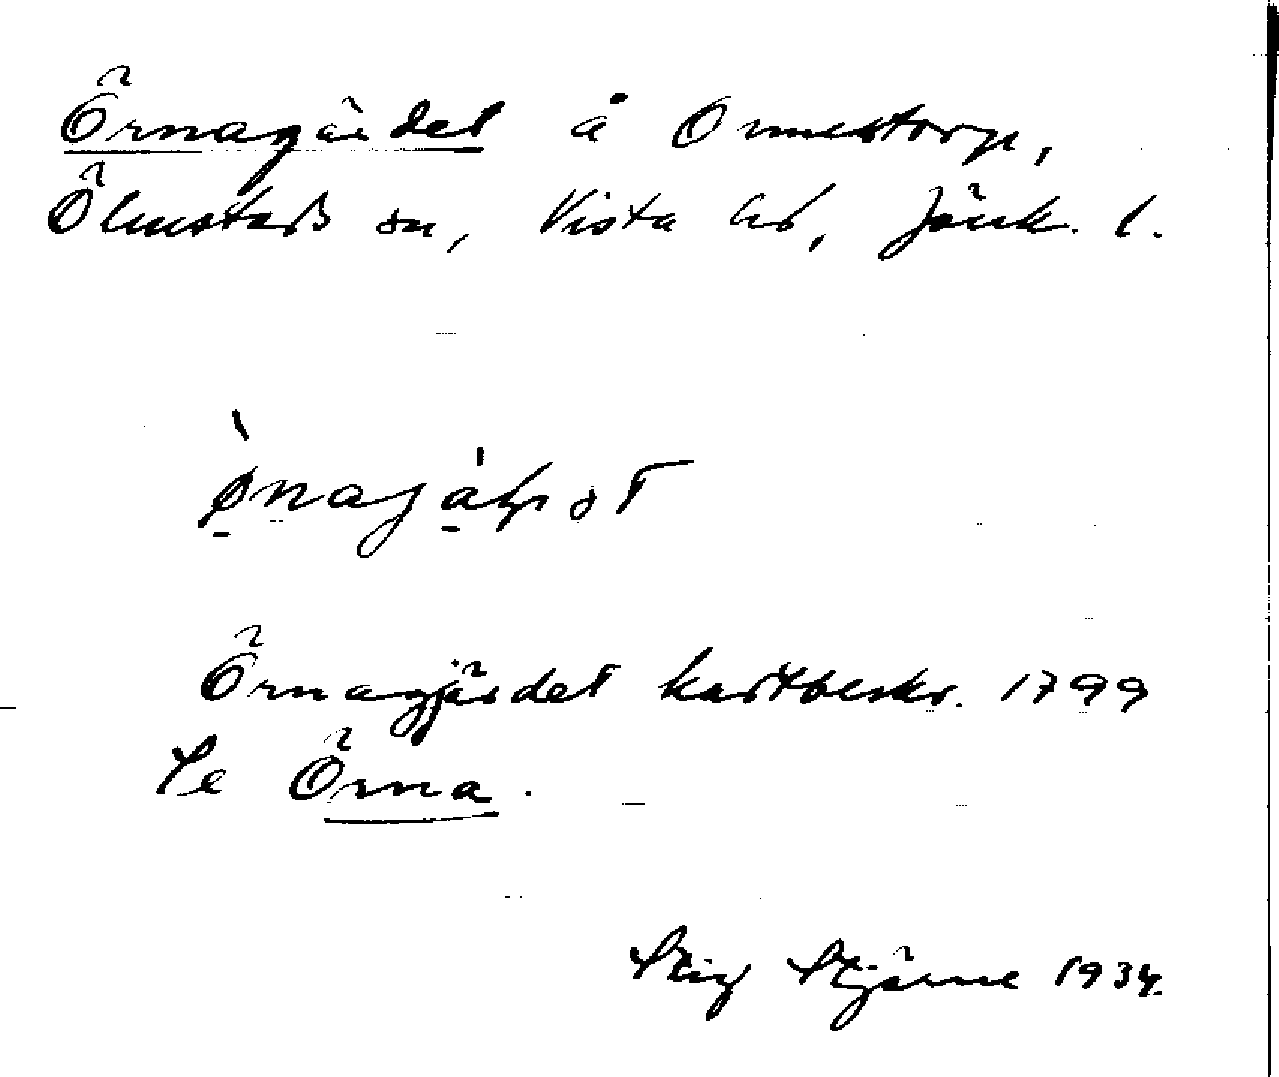 Örnagärdet å Onnestorp,
Ölmstads sn, Vista hd, Jönk. l.
Örnagjärdet kartbeskr. 1799
Se Örna.
Stig Stjärne 1934.